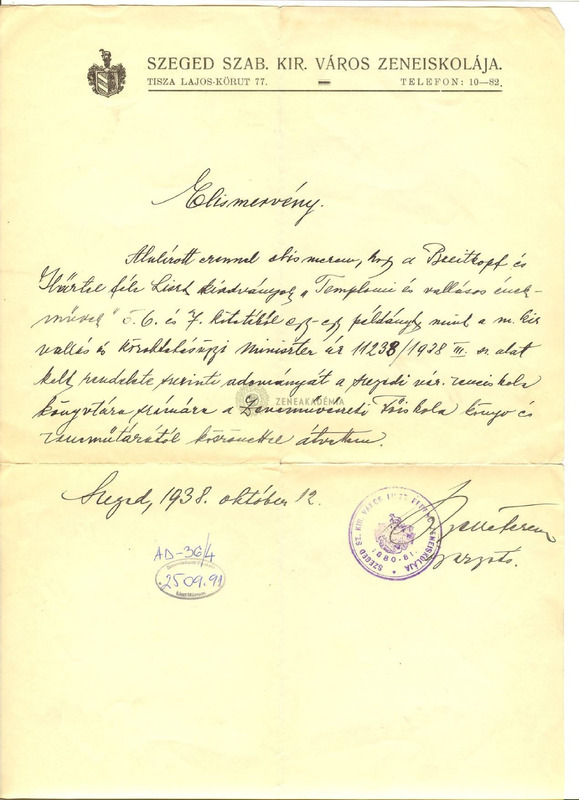 SZEGED SZAB. KIR. VÁROS ZENEISKOLÁJA.
TISZA LAJOS-KÖRUT 77. TELEFON: 10—82.
Elismervény.
Alulírott ezennel elismerem, hogy a Breitkopf és
Härtel féle Liszt kiadványok „Templomi és vallásos ének-
művek" 5. 6. és 7. kötetéből egy-egy példányt mint a m. kir.
vallás és közoktatásügyi Miniszter úr 11238/1938 III. sz. alat
kelt rendelete szerinti adományát a szegedi vár. zeneiskola
könyvtára számára a Zeneművészeti Főiskola könyv és
zeneműtárától köszönettel átvettem.
ZENEAKADÉMIA
Szeged, 1938. október 12.
SZEGED SZ. KIR. VÁROS ZENEISKOLÁJA
1880-81.
igazgató.
AD-36/4
2509.91